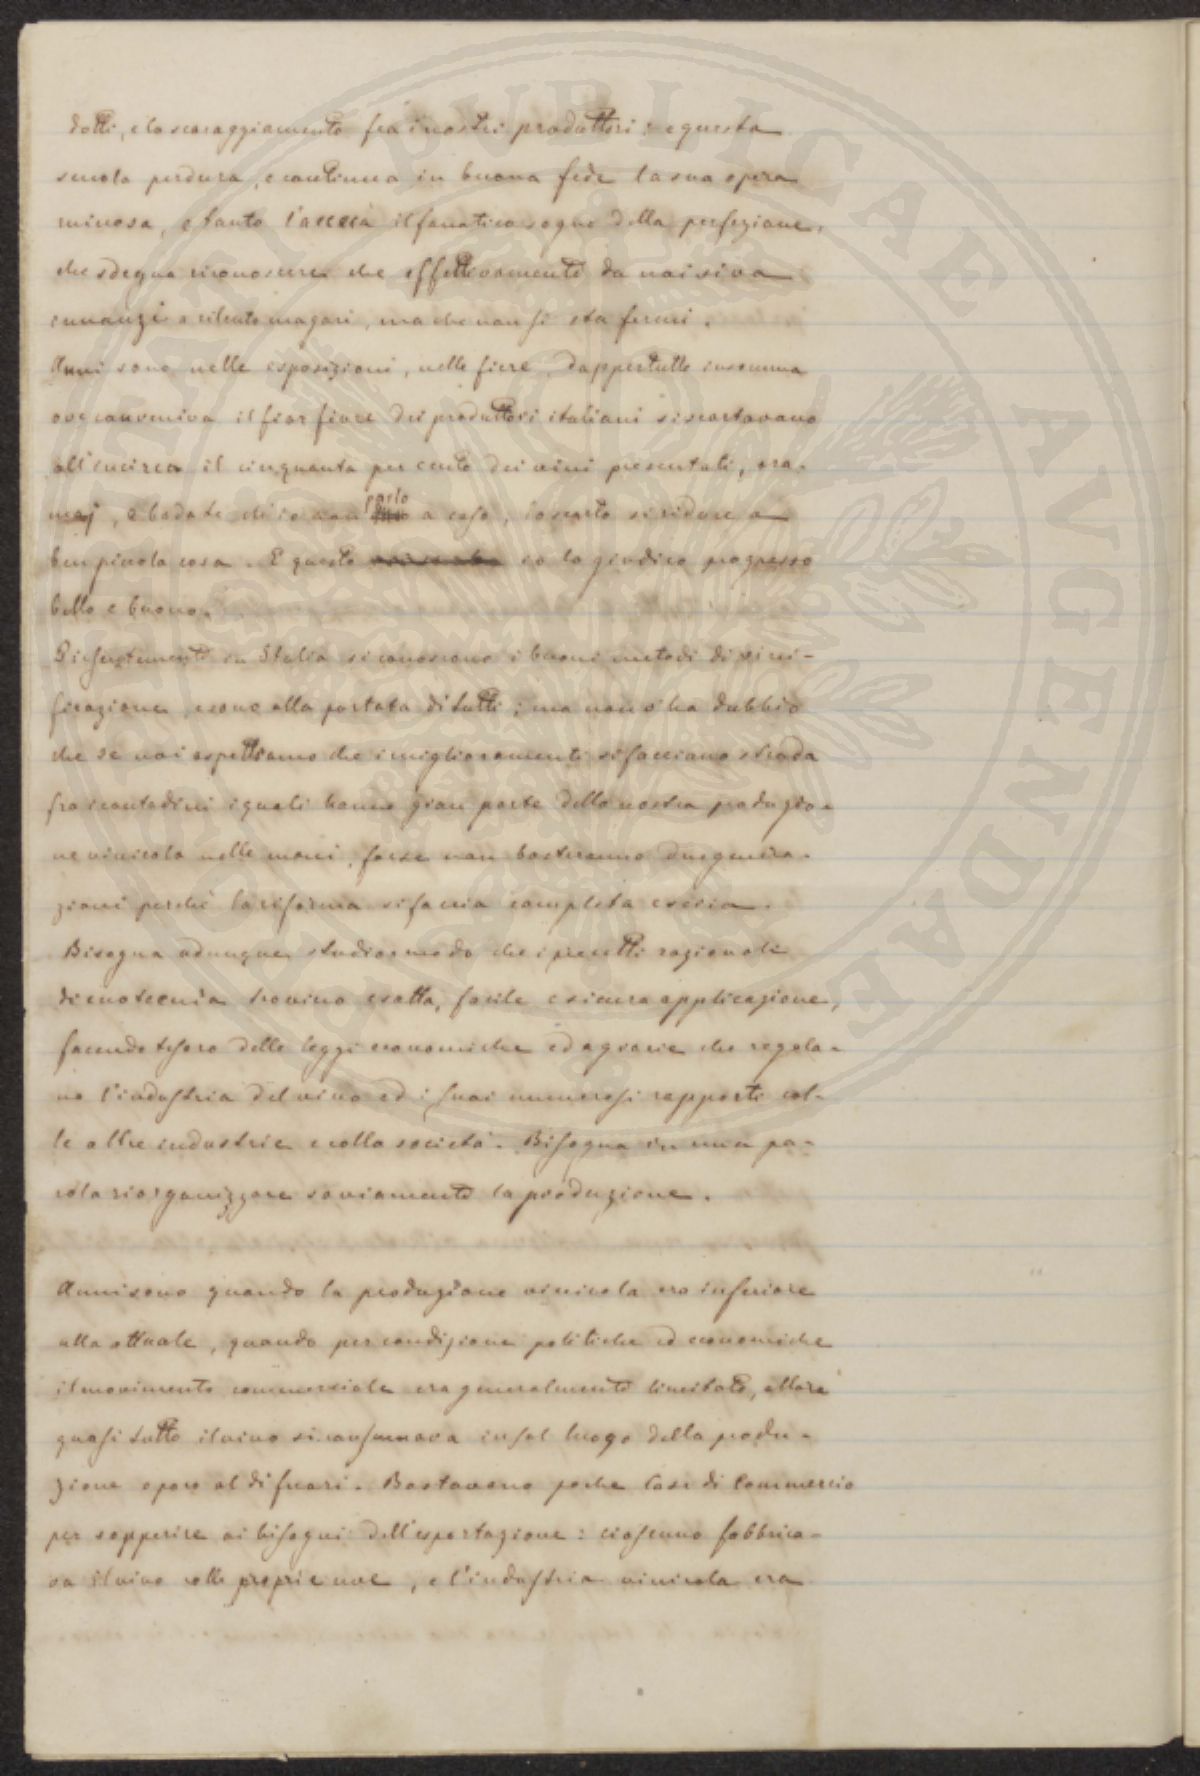 dotti, e lo scoraggiamento fra i nostri produttori: e questa
scuola perdura, e continua in buona fede la sua opera
ruinosa, e tanto l'accecà il fanatico sogno della perfezione,
che sdegna riconoscere che effettivamente da noi si va
innanzi a rilento magari, ma che non si sta fermi.
Anni sono nelle esposizioni, nelle fiere, dappertutto insomma
ove conveniva il fior fiore dei produttori italiani si scartavano
all'incirca il cinquanta per cento dei vini presentati, ora-
maj, e badate ch'io non parlo a caso, lo scarto si riduce a
ben piccola cosa. E questo io lo giudico progresso
bello e buono.
in Italia si conoscono i buoni metodi di vini-
ficazione, e sono alla portata di tutti; ma non v'ha dubbio
che se noi aspettiamo che i miglioramenti si facciano strada
fra i contadini i quali hanno gran parte della nostra produzio-
ne vinicola nelle mani, forse non basteranno due genera-
zioni perché la riforma si faccia completa e seria.
Bisogna adunque studiar modo che i precetti razionali
di enotecnia trovino esatta, facile e sicura applicazione,
facendo tesoro delle leggi economiche ed agrarie che regola-
no l'industria del vino ed i suoi numerosi rapporti col-
le altre industrie e colla società. Bisogna in una pa-
rola riorganizzare saviamente la produzione.
Anni sono quando la produzione vinicola era inferiore
alla attuale, quando per condizione politiche ed economiche
il movimento commerciale era generalmente limitato, allora
quasi tutto il vino si consumava in sul luogo della produ-
zione o poco al di fuori. Bastavano poche Case di Commercio
per sopperire ai bisogni dell'esportazione: ciascuno fabbrica-
va il vino colle proprie uve, e l'industria vinicola era
POPULI LIBERTATI PUBLICAE AVGENDAE